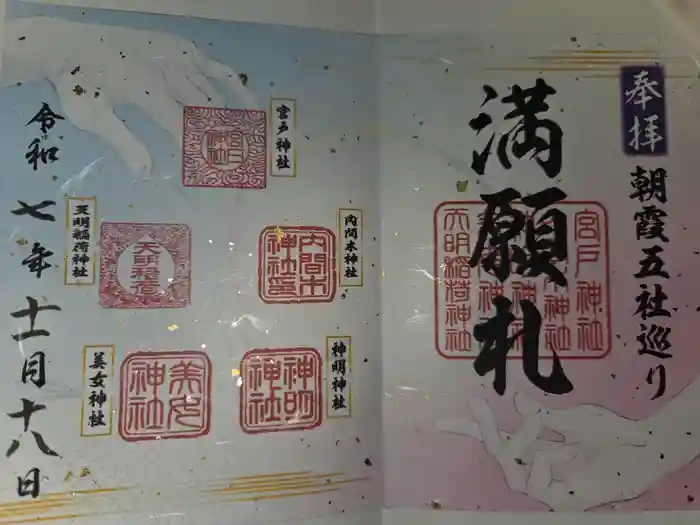 奉拝
朝霞五社巡り
満願札
宮戸神社
天明稲荷神社
宮戸神社
内間木神社
内間木神社
神明神社
神明神社
天明稲荷神社
天明稲荷
美女神社
美女神社
令和七年十一月十八日